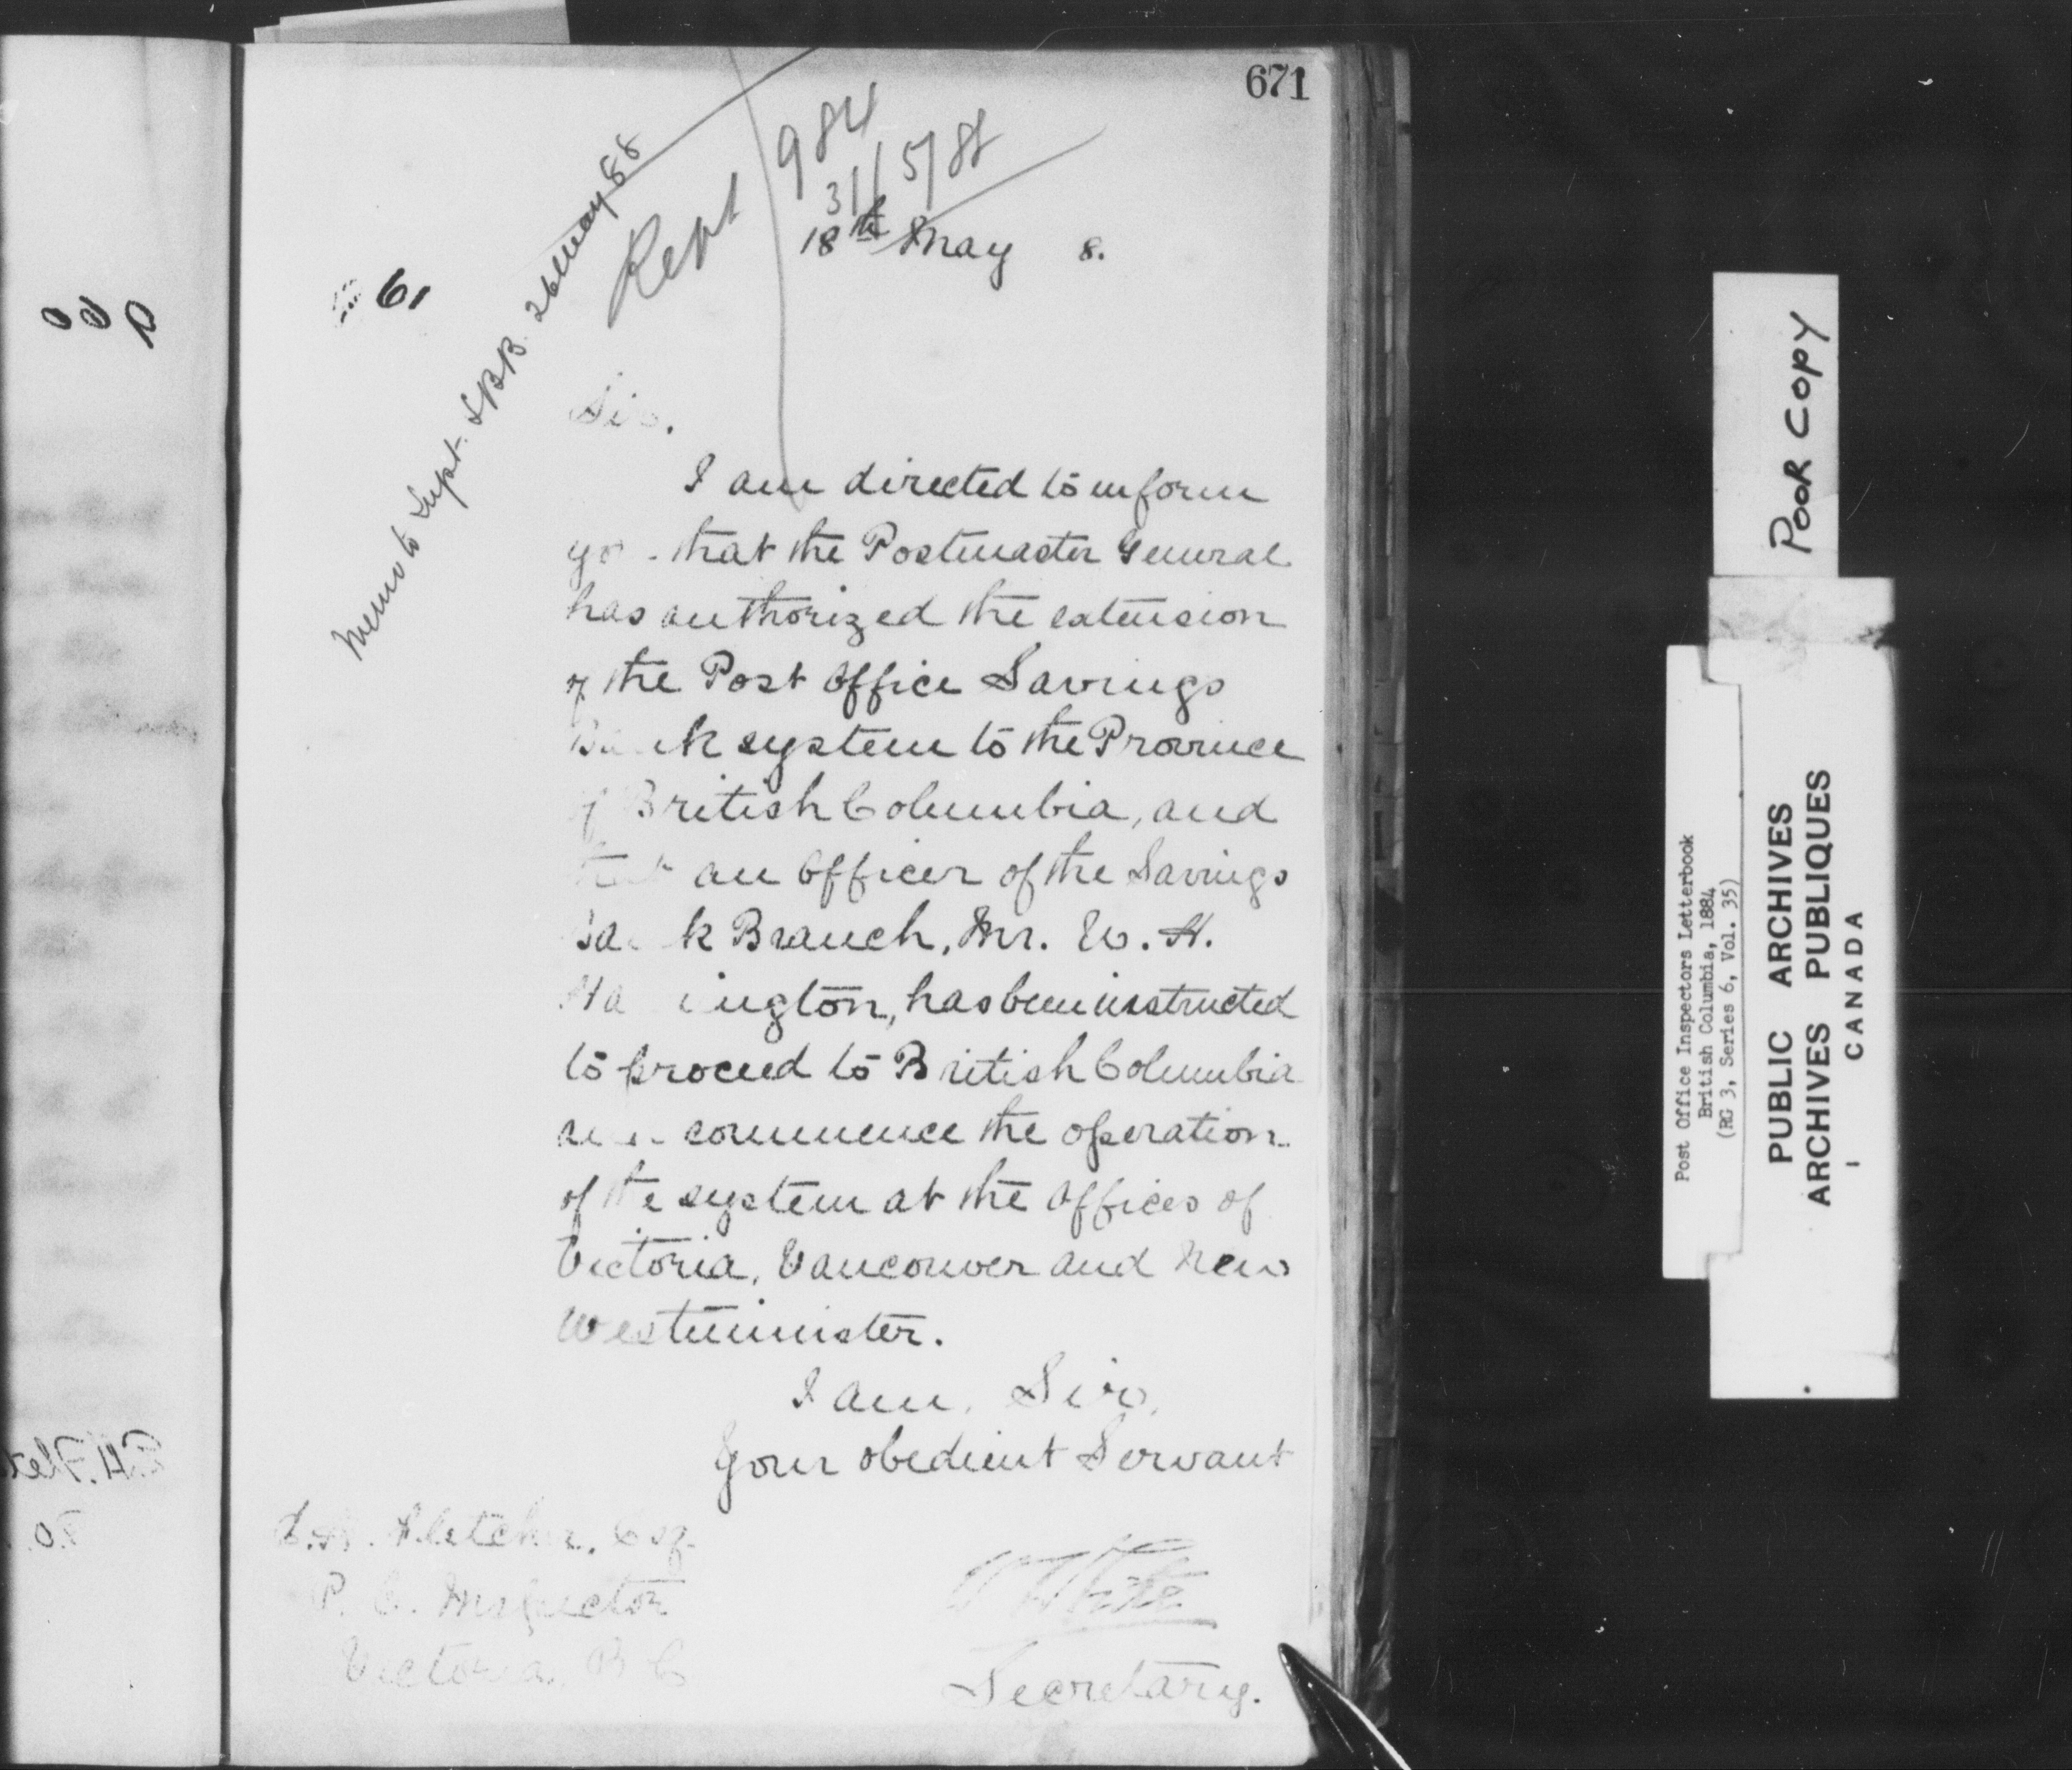 671
984
31/5/88
Rept
18th May 8.
Memo to Supt. S.B.B. 26 May 88
61
Sir.
I am directed to inform
yo . that the Postmaster General
has authorized the extension
of the Post Office Savings
Ba k system to the Province
of British Columbia, and
that an Officer of the Savings
Ba k Branch, Mr. W. H.
Ha ington, has been instructed
to proceed to British Columbia
commence the operation
of the system at the Offices of
Victoria, Vancouver and New
Westminister.
I am, Sir,
Your obedient Servant
Fletcher, Esq.
P. O. Inspector
Victoria, B C
W White
Secretary.
POOR COPY
Post Office Inspectors Letterbook
British Columbia, 1884
(RG 3, Series 6, Vol. 35)
PUBLIC ARCHIVES
ARCHIVES PUBLIQUES
CANADA